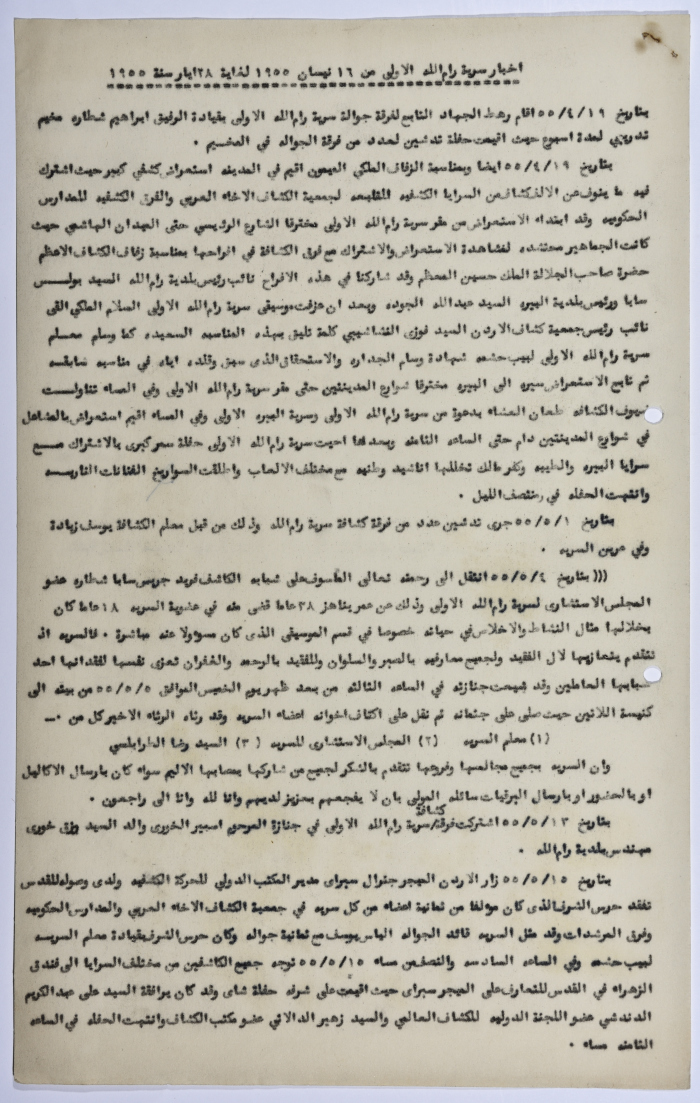 اخبار سرية رام الله الاولى من ١٦ نيسان ١٩٥٥ لغاية ٢٨ ايار سنة ١٩٥٥
بتاريخ ٥٥/٤/١٩ اقام رهط الجهاد التابع لفرقة جوالة سرية رام الله الاولى بقيادة الرفيق ابراهيم شطاره مخيم
تدريبي لمدة اسبوع حيث اقيمت حفلة تدشين لعدد من فرقة الجواله في المخيم .
بتاريخ ٥٥/٤/١٩ ايضا وبمناسبة الزفاف الملكي الميمون اقيم في المدينه استعراض كشفي كبير حيث اشترك
فيه ما ينوف عن الالف كشاف من السرايا الكشفيه التابعه لجمعية الكشاف الاخاء العربي والفرق الكشفيه للمدارس
الحكوميه وقد ابتداء الاستعراض من مقر سرية رام الله الاولى مخترقا الشارع الرئيسي حتى الميدان الهاشمي حيث
كانت الجماهير محتشده لمشاهدة الاستعراض والاشتراك مع فرق الكشافة في افراحها بمناسبة زفاف الكشاف الاعظم
حضرة صاحب الجلالة الملك حسين المعظم وقد شاركنا في هذه الافراح نائب رئيس بلدية رام الله السيد بولس
سابا ورئيس بلدية البيره السيد عبد الله الجوده وبعد ان عزفت موسيقى سرية رام الله الاولى السلام الملكي القى
نائب رئيس جمعية كشاف الاردن السيد فوزى النشاشيبي كلمة تليق بهذه المناسبه السعيده كما وسام معلم
سرية رام الله الاولى لبيب حشمه شهادة وسام الجداره والاستحقاق الذى سبق وقلده اياه في مناسبه سابقه
ثم تابع الاستعراض سيره الى البيره مخترقا شوارع المدينتين حتى مقر سرية رام الله الاولى وفي المساء تناولت
ضيوف الكشافه طعام العشاء بدعوة من سرية رام الله الاولى وسرية البيره الاولى وفي المساء اقيم استعراض بالمشاعل
في شوارع المدينتين دام حتى الساعه الثامنه وبعدها احيت سرية رام الله الاولى حفلة سمر كبرى بالاشتراك مع
سرايا البيره والطيبه وكفر مالك تخللها اناشيد وطنيه مع مختلف الالعاب واطلقت الصواريخ الفتاشات الناريه
وانتهت الحفله في منتصف الليل .
بتاريخ ٥٥/٥/١ جرى تدشين عدد من فرقة كشافة سرية رام الله وذلك من قبل معلم الكشافة يوسف زيادة
وفي عرين السريه .
((( بتاريخ ٥٥/٥/٤ انتقل الى رحمته تعالى الماسوف على شبابه الكاشف فريد جريس سابا شطاره عضو
المجلس الاستشارى لسرية رام الله الاولى وذلك عن عمر يناهز ٣٨ عاما قضى منه في عضوية السريه ١٨ عاما كان
بخلالها مثال النشاط والاخلاص في حياته خصوصا في قسم الموسيقى الذى كان مسؤولا عنه مباشرة . فالسريه اذ
تتقدم بتعازيها لال الفقيد ولجميع معارفيه بالصبر والسلوان وللفقيد بالرحمه والغفران تعزى نفسها لفقدانها احد
شبابها العاملين وقد شيعت جنازته في الساعه الثالثه من بعد ظهر يوم الخميس الموافق ٥٥/٥/٥ من بيته الى
كنيسة اللاتين حيث صلى على جثمانه ثم نقل على اكتاف اخوانه اعضاء السريه وقد رثاه الرثاء الاخير كل من .—
(١) معلم السريه (٢) المجلس الاستشارى للسريه (٣) السيد رضا الطرابلسي
وان السريه بجميع مجالسها وفروعها تتقدم بالشكر لجميع من شاركها بمصابها الاليم سواء كان بارسال الاكاليل
او بالحضور او بارسال البرقيات سائله المولى بان لا يفجعهم بعزيز لديهم وانا لله وانا الى راجعون .
بتاريخ ٥٥/٥/١٣ اشتركت فرقة كشافة سرية رام الله الاولى في جنازة المرحوم اسبير الخورى والد السيد رزق خورى
مهندس بلدية رام الله .
بتاريخ ٥٥/٥/١٥ زار الاردن الميجر جنرال سبراى مدير المكتب الدولي للحركة الكشفيه ولدى وصوله للقدس
تفقد حرس الشرف الذى كان مؤلفا من ثمانية اعضاء من كل سريه في جمعية الكشاف الاخاء العربي والمدارس الحكوميه
وفرق المرشدات وقد مثل السريه قائد الجواله الياس يوسف مع ثمانية جواله وكان حرس الشرف بقيادة معلم السريه
لبيب حشمه وفي الساعه السادسه والنصف من مساء ٥٥/٥/١٥ توجه جميع الكاشفين من مختلف السرايا الى فندق
الزهراء في القدس للتعارف على الميجر سبراى حيث اقيمت على شرفه حفلة شاى وقد كان يرافقة السيد على عبد الكريم
الدندشي عضو اللجنة الدوليه للكشاف العالمي والسيد زهير الدالاتي عضو مكتب الكشاف وانتهت الحفله في الساعه
الثامنه مساء .